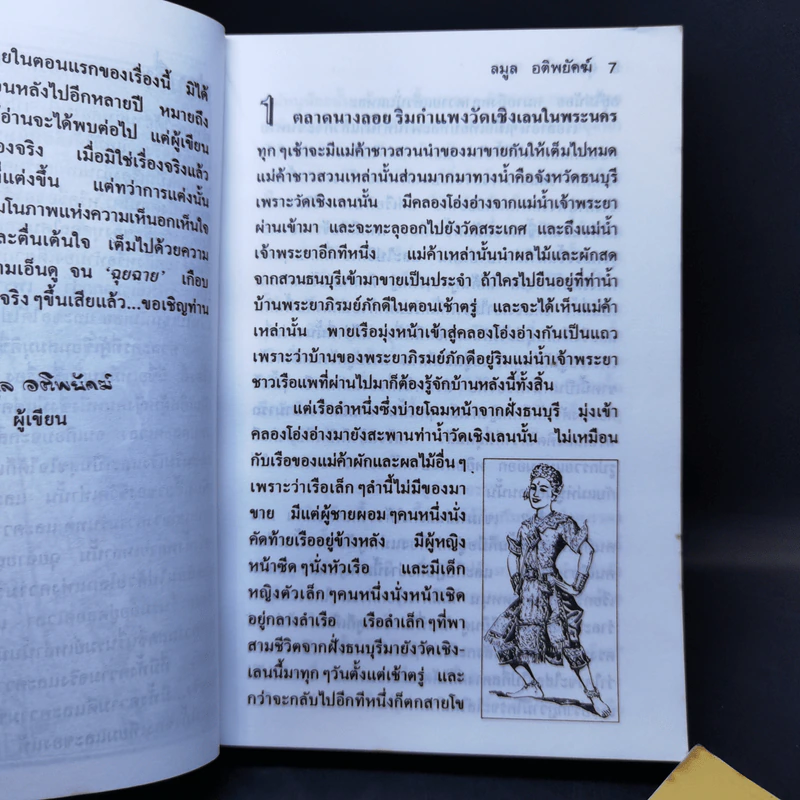 ยในตอนแรกของเรื่องนี้ มิได้
อนหลังไปอีกหลายปี หมายถึง
อ่านจะได้พบต่อไป แต่ผู้เขียน
องจริง เมื่อมิใช่เรื่องจริงแล้ว
ที่แต่งขึ้น แต่ทว่าการแต่งนั้น
มโนภาพแห่งความเห็นอกเห็นใจ
ละตื่นเต้นใจ เต็มไปด้วยความ
ามเอ็นดู จน 'ฉุยฉาย' เกือบ
จริงๆขึ้นเสียแล้ว...ขอเชิญท่าน
ล อติพยัคฆ์
ผู้เขียน
ลมูล อติพยัคฆ์ 7
1 ตลาดนางลอย ริมกำแพงวัดเชิงเลนในพระนคร
ทุกๆเช้าจะมีแม่ค้าชาวสวนนำของมาขายกันให้เต็มไปหมด
แม่ค้าชาวสวนเหล่านั้นส่วนมากมาทางน้ำคือจังหวัดธนบุรี
เพราะวัดเชิงเลนนั้น มีคลองโอ่งอ่างจากแม่น้ำเจ้าพระยา
ผ่านเข้ามา และจะทะลุออกไปยังวัดสระเกศ และถึงแม่น้ำ
เจ้าพระยาอีกทีหนึ่ง แม่ค้าเหล่านั้นนำผลไม้และผักสด
จากสวนธนบุรีเข้ามาขายเป็นประจำ ถ้าใครไปยืนอยู่ที่ท่าน้ำ
บ้านพระยาภิรมย์ภักดีในตอนเช้าตรู่ และจะได้เห็นแม่ค้า
เหล่านั้น พายเรือมุ่งหน้าเข้าสู่คลองโอ่งอ่างกันเป็นแถว
เพราะว่าบ้านของพระยาภิรมย์ภักดีอยู่ริมแม่น้ำเจ้าพระยา
ชาวเรือแพที่ผ่านไปมาก็ต้องรู้จักบ้านหลังนี้ทั้งสิ้น
แต่เรือลำหนึ่งซึ่งบ่ายโฉมหน้าจากฝั่งธนบุรี มุ่งเข้า
คลองโอ่งอ่างมายังสะพานท่าน้ำวัดเชิงเลนนั้น ไม่เหมือน
กับเรือของแม่ค้าผักและผลไม้อื่นๆ
เพราะว่าเรือเล็กๆลำนี้ไม่มีของมา
ขาย มีแต่ผู้ชายผอมๆคนหนึ่งนั่ง
คัดท้ายเรืออยู่ข้างหลัง มีผู้หญิง
หน้าซีดๆนั่งหัวเรือ และมีเด็ก
หญิงตัวเล็กๆคนหนึ่งนั่งหน้าเชิด
อยู่กลางลำเรือ เรือลำเล็กๆที่พา
สามชีวิตจากฝั่งธนบุรีมายังวัดเชิง-
เลนนี้มาทุกๆวันตั้งแต่เช้าตรู่ และ
กว่าจะกลับไปอีกทีหนึ่งก็ตกสายโข